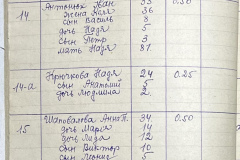 14 Антонюк Іван 33 0.50
жена Надя 36
сын Василь 8
дочь Надя 5
сын Петр 3
мать Надя 81
14-а Крючкова Надя 24 0.25
сын Анатолий 5
дочь Людмила 2
15 Шаповалова Анна П. 34 0.50
дочь Мария 14
дочь Лида 12
сын Виктор 10
сын Леонид 5